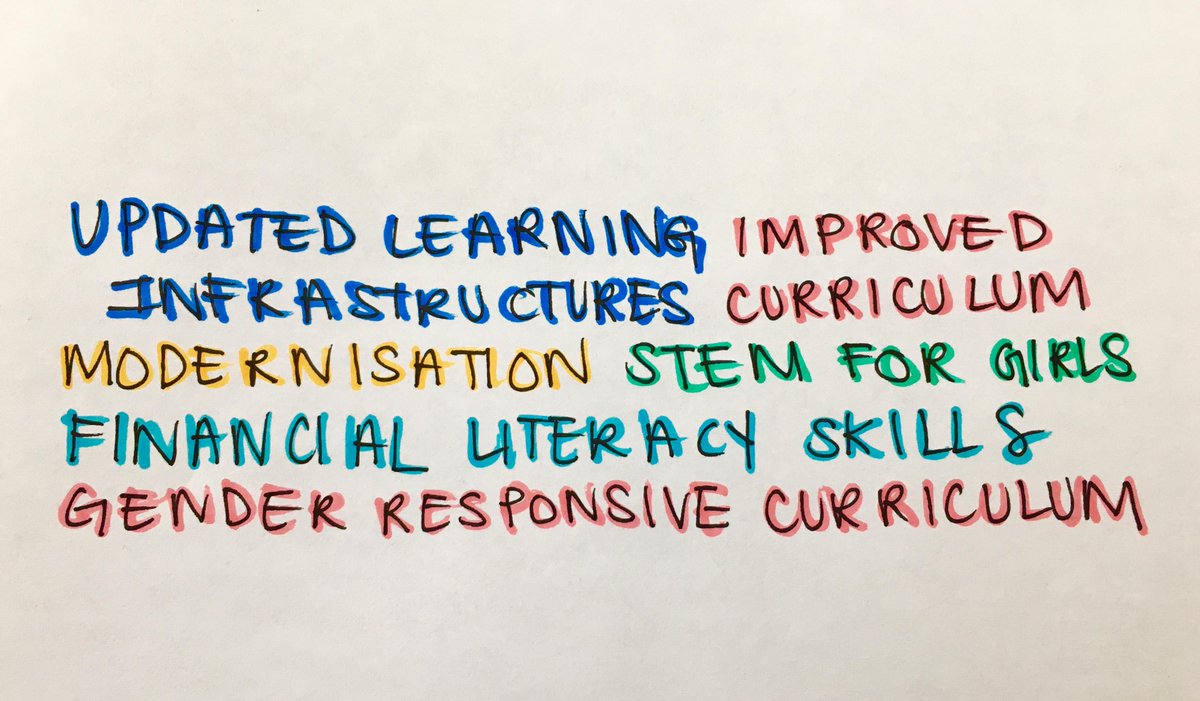 UPDATED LEARNING IMPROVED
INFRASTRUCTURES CURRICULUM
MODERNISATION STEM FOR GIRLS
FINANCIAL LITERACY SKILLS
GENDER RESPONSIVE CURRICULUM